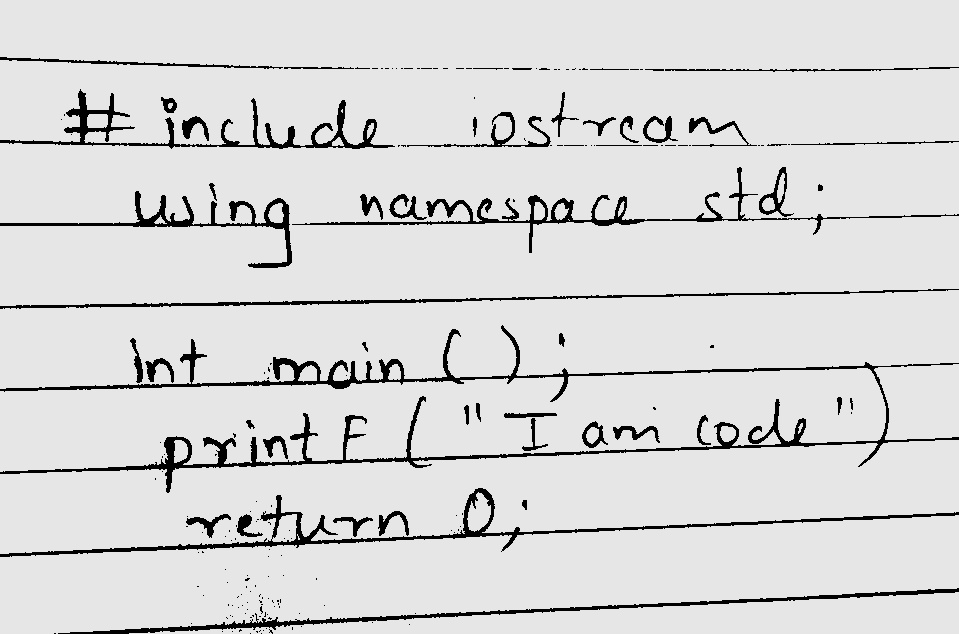 # include iostream
using namespace std;
int main ();
printF ("I am code")
return 0;